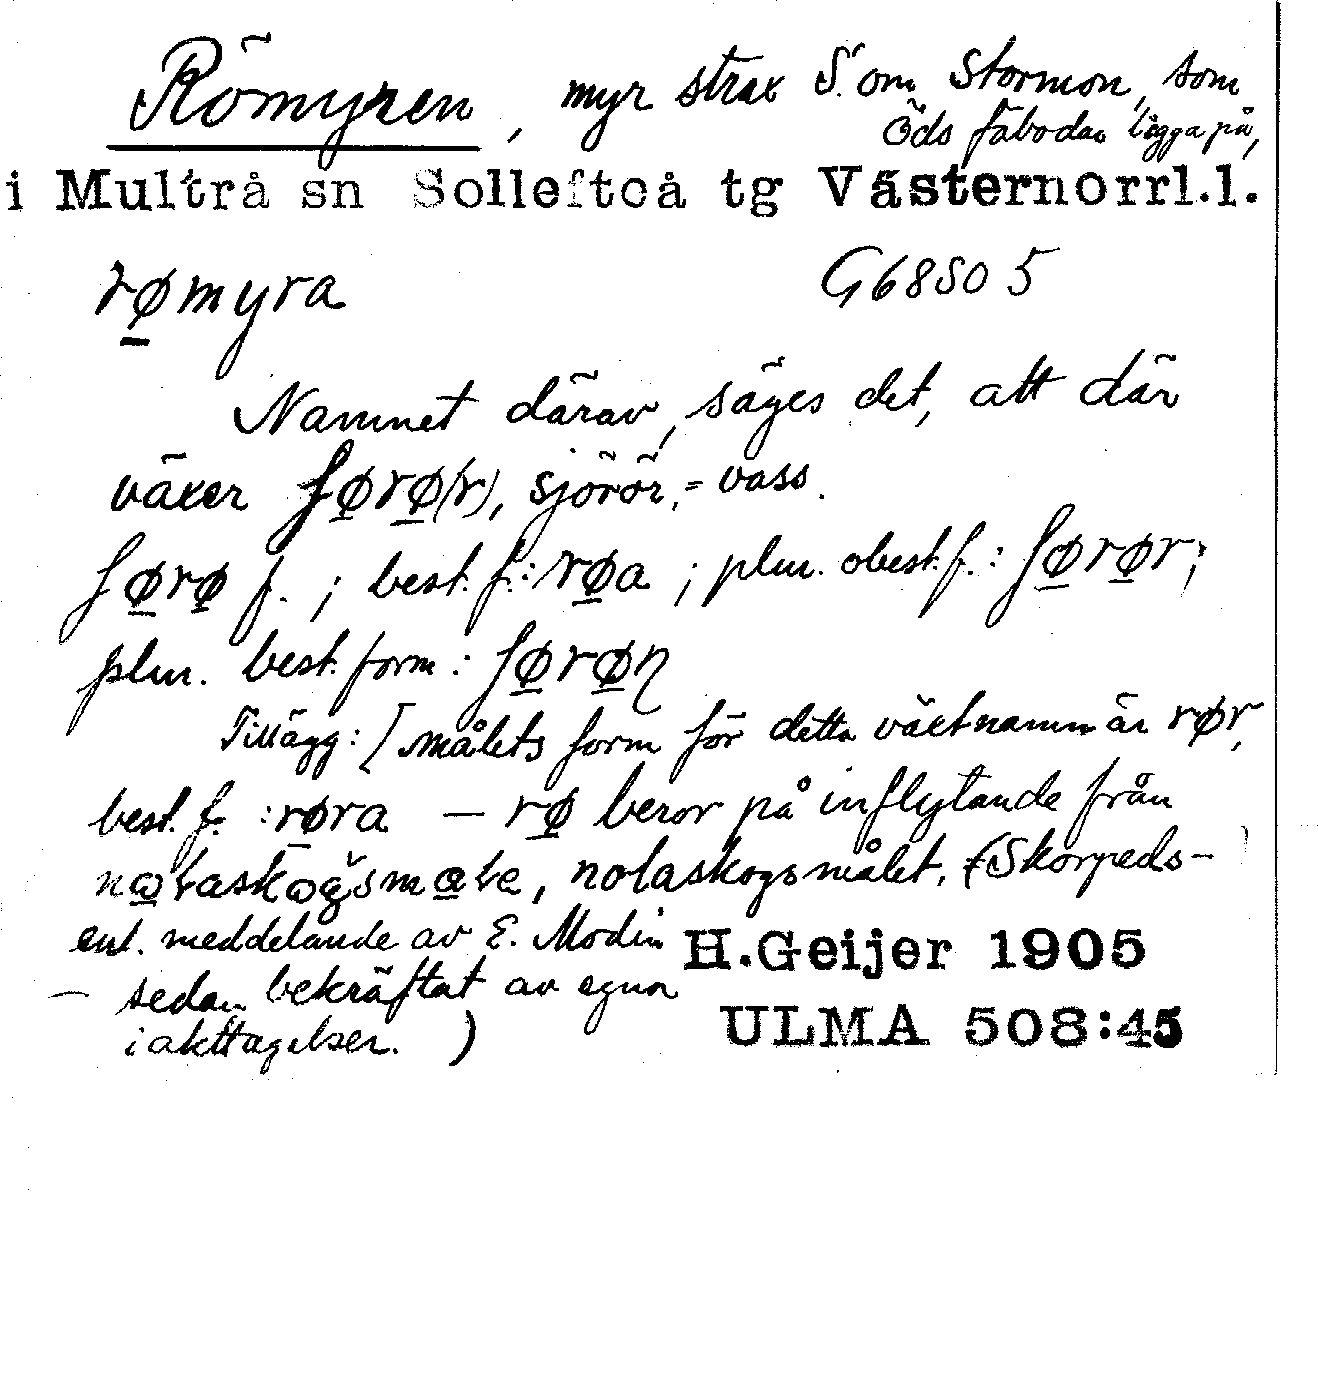 Römyren, myr strax S. om Stormon, som
Öds fäbodar ligga på,
i Multrå sn Sollefteå tg Västernorrl.l.
rømyra G6850 5
Namnet därav, säges det, att där
växer ʃørø(r), sjörör, = vass.
ʃørø f. ; best. f.: røa ; plur. obest. f.: ʃørør;
plur. best. form : ʃørøn
Tillägg: [målets form för detta växtnamn är rør,
best. f. : røra — rø beror på inflytande från
nolaskogsmålet. (Skorpeds-
enl. meddelande av E. Modin
H.Geijer 1905
— sedan bekräftat av egna
iakttagelser. )
ULMA 508:45